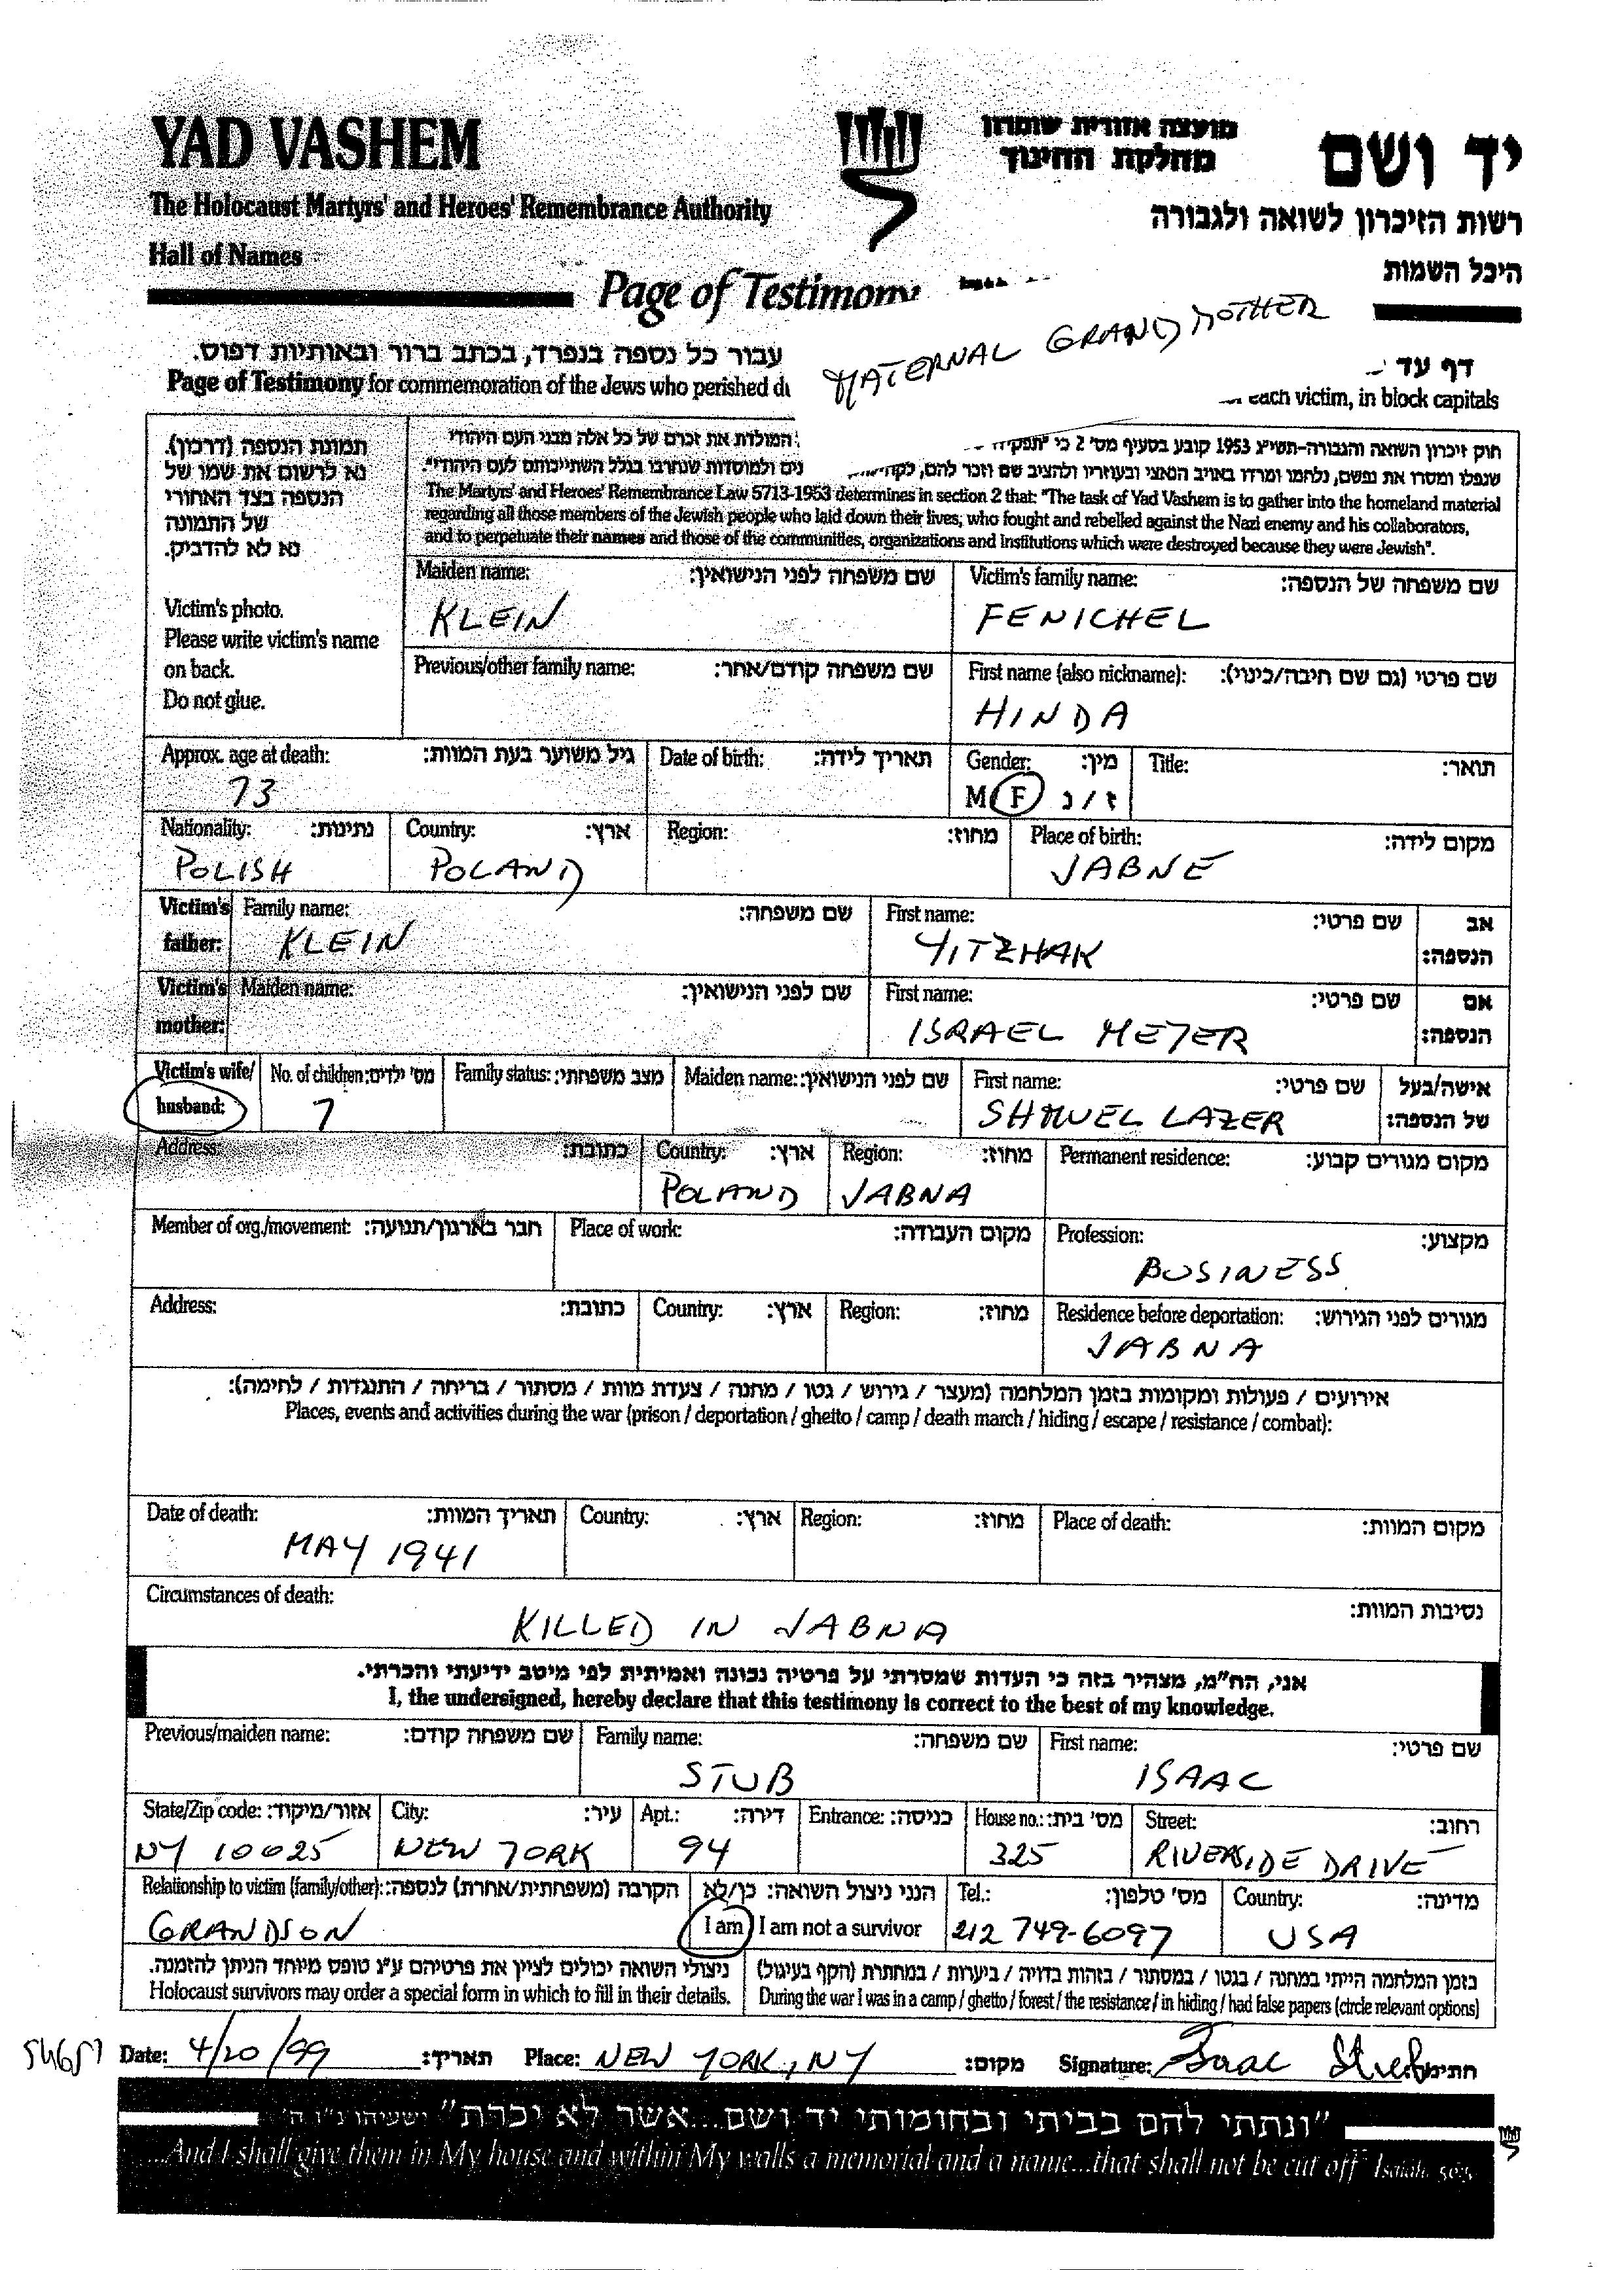 YAD VASHEM
The Holocaust Martyrs' and Heroes' Remembrance Authority
Hall of Names
מועצה אזורית שומרון
מחלקת החינוך
יד ושם
רשות הזיכרון לשואה ולגבורה
היכל השמות
Page of Testimony
MATERNAL GRANDMOTHER
דף עד
עבור כל נספה בנפרד, בכתב ברור ובאותיות דפוס.
Page of Testimony for commemoration of the Jews who perished du
each victim, in block capitals
תמונת הנספה (דרכון).
נא לרשום את שמו של
הנספה בצד האחורי
של התמונה
נא לא להדביק.
Victim's photo.
Please write victim's name
on back.
Do not glue.
חוק זיכרון השואה והגבורה–תשי״ג 1953 קובע בסעיף מס' 2 כי המולדת את זכרם של כל אלה מבני העם היהודי
שנפלו ומסרו את נפשם, נלחמו ומרדו באויב הנאצי ובעוזריו ולהציב שם וזכר להם, ולמוסדות שנחרבו בגלל השתייכותם לעם היהודי".
The Martyrs' and Heroes' Remembrance Law 5713-1953 determines in section 2 that: "The task of Yad Vashem is to gather into the homeland material
regarding all those members of the Jewish people who laid down their lives, who fought and rebelled against the Nazi enemy and his collaborators,
and to perpetuate their names and those of the communities, organizations and institutions which were destroyed because they were Jewish".
Maiden name: שם משפחה לפני הנישואין: Victim's family name: שם משפחה של הנספה:
KLEIN FENICHEL
Previous/other family name: שם משפחה קודם/אחר: First name (also nickname): שם פרטי (גם שם חיבה/כינוי):
HINDA
Approx. age at death: גיל משוער בעת המוות: Date of birth: תאריך לידה: Gender: מין: Title: תואר:
73 M F ז / נ
Nationality: נתינות: Country: ארץ: Region: מחוז: Place of birth: מקום לידה:
POLISH POLAND JABNE
Victim's father: Family name: שם משפחה: First name: שם פרטי: אב הנספה:
KLEIN YITZHAK
Victim's mother: Maiden name: שם לפני הנישואין: First name: שם פרטי: אם הנספה:
ISRAEL MEJER
Victim's wife/ husband: No. of children: מס' ילדים: Family status: מצב משפחתי: Maiden name: שם לפני הנישואין: First name: שם פרטי: אישה/בעל של הנספה:
7 SHMUEL LAZER
Address: כתובת: Country: ארץ: Region: מחוז: Permanent residence: מקום מגורים קבוע:
POLAND JABNA
Member of org./movement: חבר בארגון/תנועה: Place of work: מקום העבודה: Profession: מקצוע:
BUSINESS
Address: כתובת: Country: ארץ: Region: מחוז: Residence before deportation: מגורים לפני הגירוש:
JABNA
אירועים / פעולות ומקומות בזמן המלחמה (מעצר / גירוש / גטו / מחנה / צעדת מוות / מסתור / בריחה / התנגדות / לחימה):
Places, events and activities during the war (prison / deportation / ghetto / camp / death march / hiding / escape / resistance / combat):
Date of death: תאריך המוות: Country: ארץ: Region: מחוז: Place of death: מקום המוות:
MAY 1941
Circumstances of death: נסיבות המוות:
KILLED IN JABNA
אני, הח״מ, מצהיר בזה כי העדות שמסרתי על פרטיה נכונה ואמיתית לפי מיטב ידיעתי והכרתי.
I, the undersigned, hereby declare that this testimony is correct to the best of my knowledge.
Previous/maiden name: שם משפחה קודם: Family name: שם משפחה: First name: שם פרטי:
STUB ISAAC
State/Zip code: אזור/מיקוד: City: עיר: Apt.: דירה: Entrance: כניסה: House no.: מס' בית: Street: רחוב:
NY 10025 NEW YORK 94 325 RIVERSIDE DRIVE
Relationship to victim (family/other): הקרבה (משפחתית/אחרת) לנספה: הנני ניצול השואה: כן/לא Tel.: מס' טלפון: Country: מדינה:
GRANDSON I am I am not a survivor 212 749-6097 USA
ניצולי השואה יכולים לציין את פרטיהם ע״ג טופס מיוחד הניתן להזמנה. בזמן המלחמה הייתי במחנה / בגטו / במסתור / בזהות בדויה / ביערות / במחתרת (הקף בעיגול)
Holocaust survivors may order a special form in which to fill in their details. During the war I was in a camp / ghetto / forest / the resistance / in hiding / had false papers (circle relevant options)
Date: 4/20/99 תאריך: Place: NEW YORK, NY מקום: Signature: Isaac Stub
"ונתתי להם בביתי ובחומותי יד ושם...אשר לא יכרת" ישעיהו נ״ו ה'
...And I shall give them in My house and within My walls a memorial and a name...that shall not be cut off Isaiah 56:5